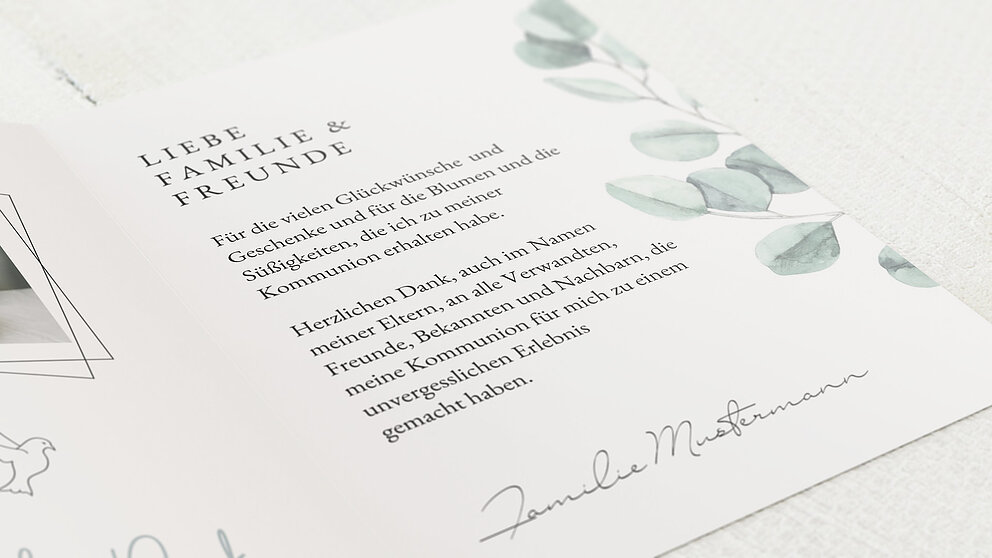 LIEBE
FAMILIE &
FREUNDE
Für die vielen Glückwünsche und
Geschenke und für die Blumen und die
Süßigkeiten, die ich zu meiner
Kommunion erhalten habe.
Herzlichen Dank, auch im Namen
meiner Eltern, an alle Verwandten,
Freunde, Bekannten und Nachbarn, die
meine Kommunion für mich zu einem
unvergesslichen Erlebnis
gemacht haben.
Familie Mustermann